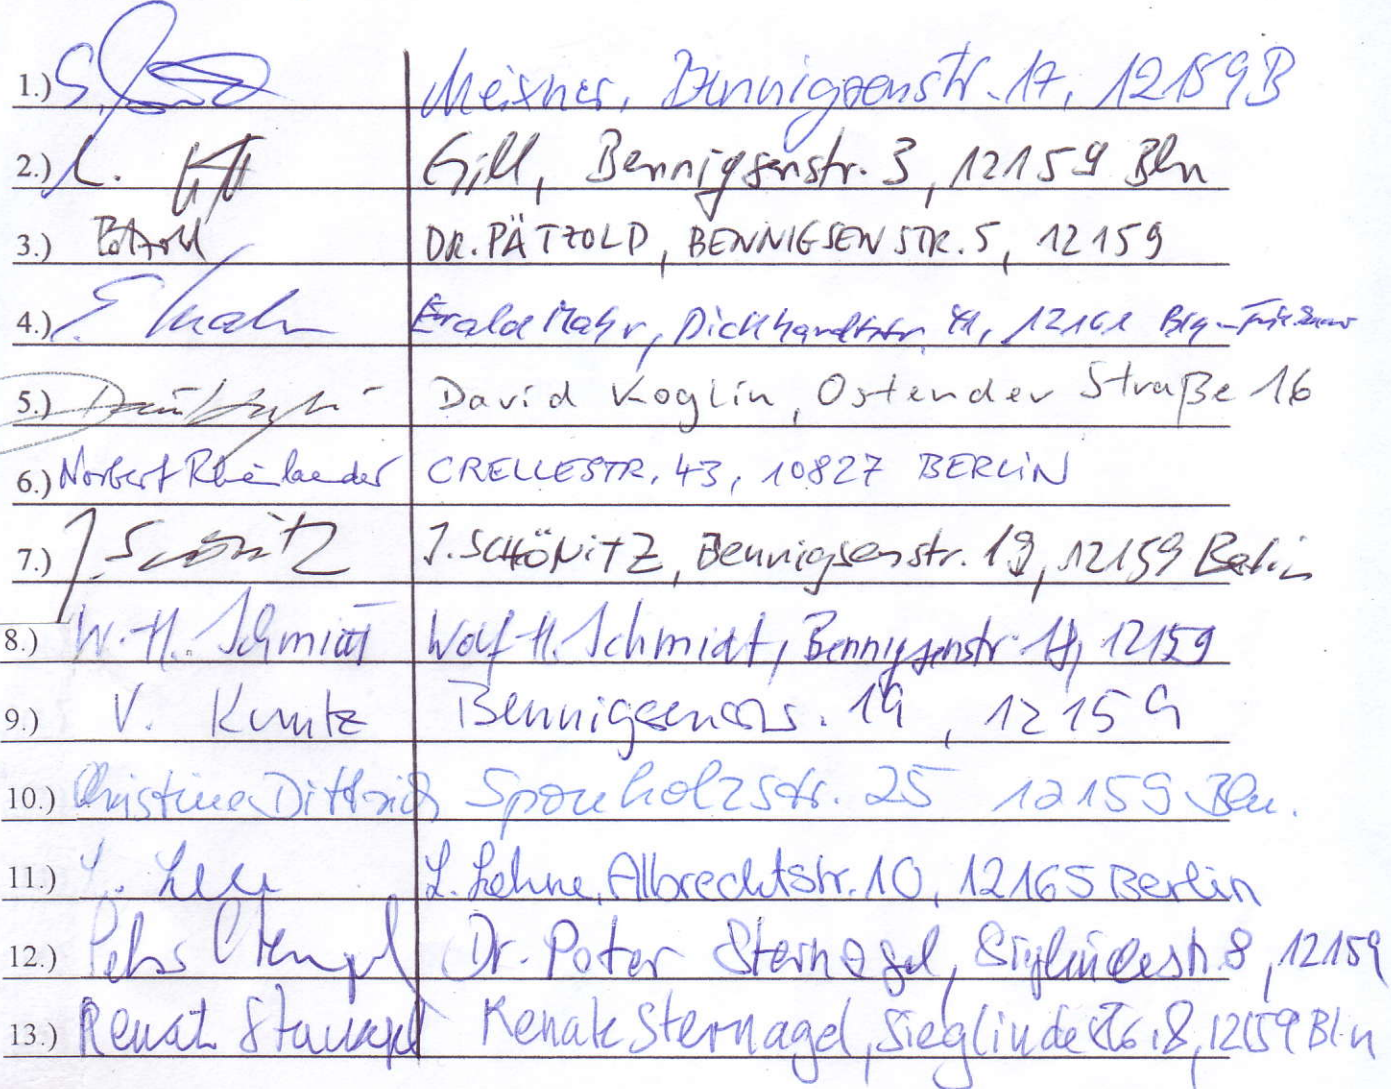 1.) Meixner, Bennigsenstr. 17, 12159 B
2.) L. Gill, Bennigsenstr. 3, 12159 Bln
3.) Pätzold DR. PÄTZOLD, BENNIGSENSTR. 5, 12159
4.) E. Mahr, Dickhardtstr. 12161
5.) David Koglin, Ostender Straße 16
6.) Norbert Rheinlaender CRELLESTR. 43, 10827 BERLiN
7.) J. Schönitz J. SCHÖNiTZ, Bennigsenstr. 19, 12159 Berlin
8.) W.-H. Schmidt Wolf-H. Schmidt, Bennigsenstr. 12159
9.) V. Kuntz Bennigsenstr. 19, 12159
10.) Christine Dittrich Sponholzstr. 25 12159 Bln.
11.) L. Lehne L. Lehne, Albrechtstr. 10, 12165 Berlin
12.) Dr. Peter Sternagel, Sieglindestr. 8, 12159
13.) Renate Sternagel Renate Sternagel, Sieglindestr. 8, 12159 Bln